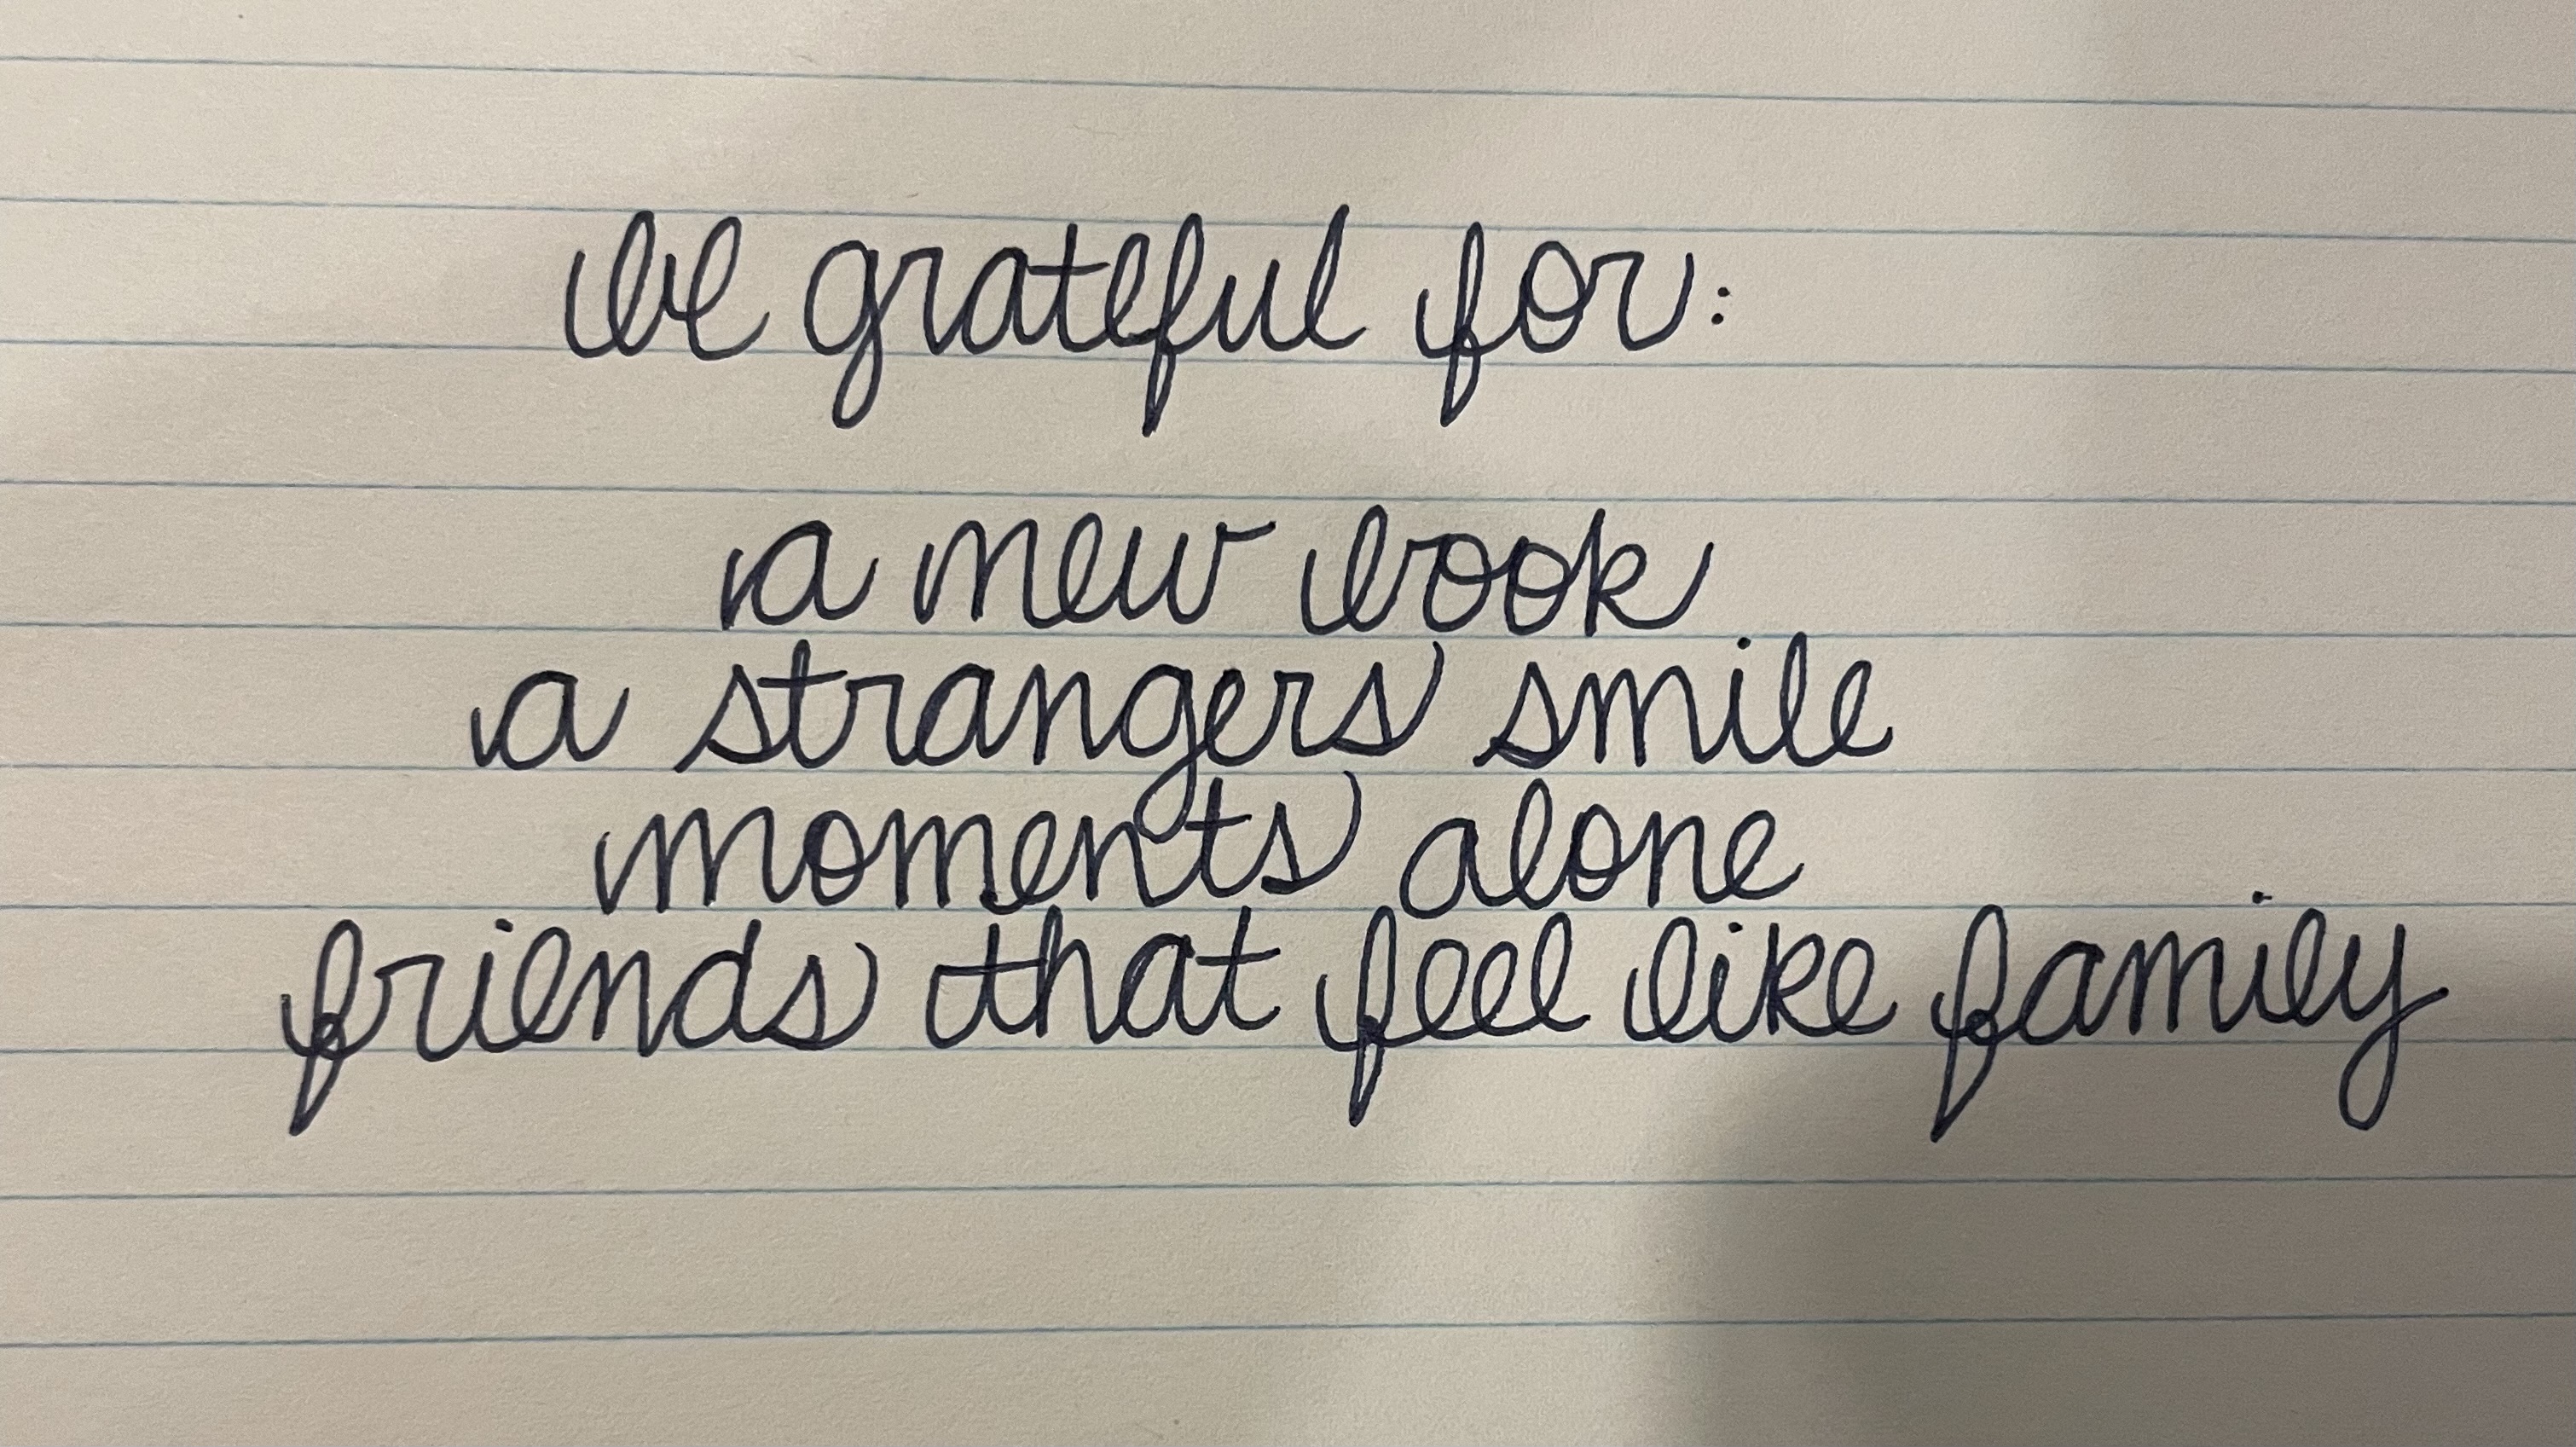 be grateful for:
a new book
a strangers smile
moments alone
friends that feel like family